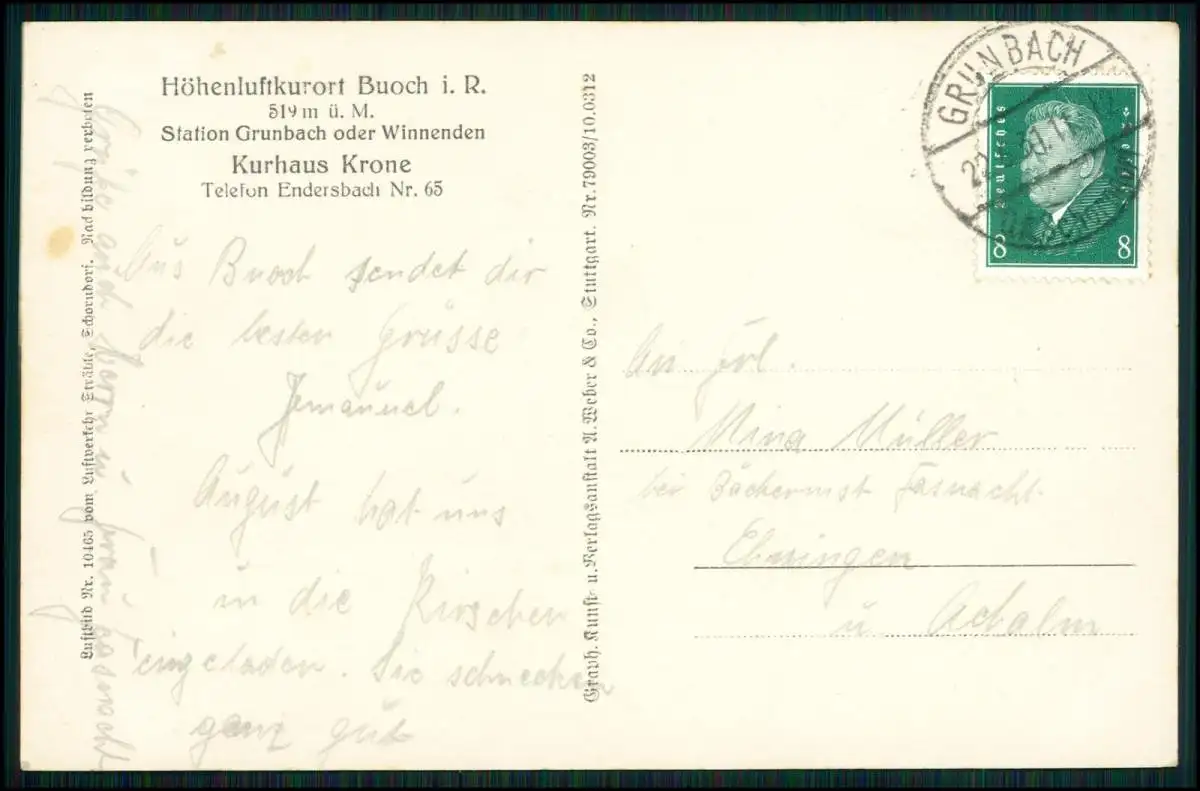 Höhenluftkurort Buoch i. R.
519 m ü. M.
Station Grunbach oder Winnenden
Kurhaus Krone
Telefon Endersbach Nr. 65
Aus Buoch sendet dir
die besten Grüsse
August hat uns
in die Kirschen
eingeladen. Sie schmecken
ganz gut
Grüße auch Herrn u. Frau Fasnacht
Luftbild Nr. 10465 vom Luftverkehr Strähle, Schorndorf. Nachbildung verboten
Graph. Kunst- u. Verlagsanstalt A. Weber & Co., Stuttgart. Nr. 79003/10.0312
GRUNBACH
Deutsches
8 8
An Frl.
Mina Müller
bei Bäckermst Fasnacht
Ehningen
u. Achalm